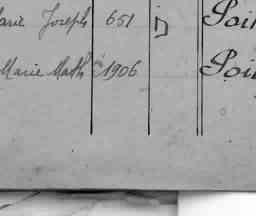 arie Joseph 651 D Poi
Marie Math 1906 Poi